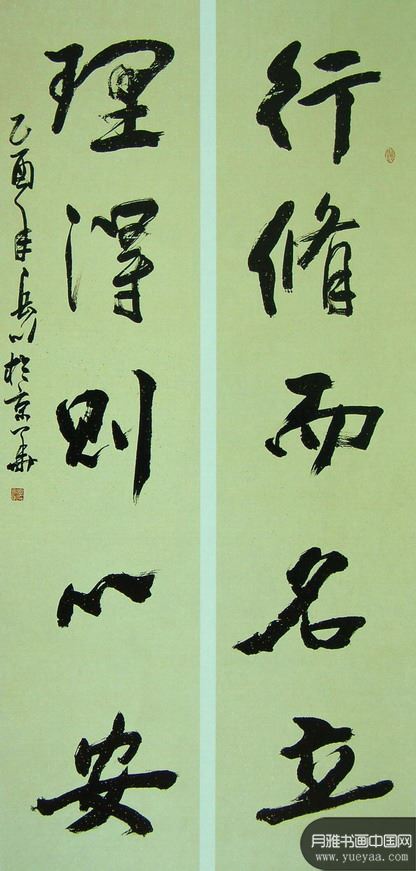 行脩而名立
理得则心安
乙酉年岳川於京华
月雅书画中国网
www.yueyaa.com